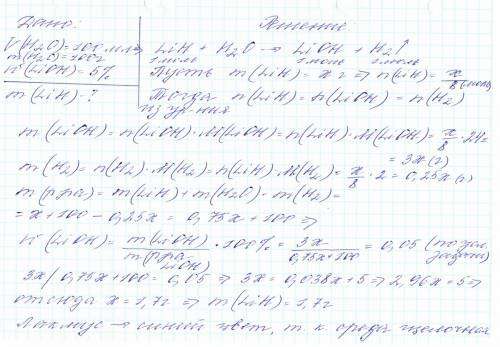 Дано:
Решение:
V(H₂O)=100 мл ⇒
m(H₂O)=100г
W(LiOH)=5%
m(LiH)-?
LiH + H₂O → LiOH + H₂↑
1моль 1моль 1моль
Пусть m(LiH)=x г ⇒ n(LiH)= x/8 (моль)
Тогда n(LiH)=n(LiOH)=n(H₂)
из ур-ния
m(LiOH)=n(LiOH)·M(LiOH)=n(LiH)·M(LiOH)= x/8 · 24=
= 3x(г)
m(H₂)=n(H₂)·M(H₂)=n(LiH)·M(H₂)= x/8 · 2=0,25x(г)
m(р-ра)=m(LiH)+m(H₂O)-m(H₂)=
= x+100-0,25x = 0,75x+100 ⇒
W(LiOH)= m(LiOH)/m(р-ра LiOH) ·100% = 3x/0,75x+100 = 0,05 (по усл. задачи)
3x/0,75x+100=0,05 ⇒ 3x=0,038x+5 ⇒ 2,96x=5 ⇒
отсюда x=1,7г ⇒ m(LiH)=1,7г
Лакмус → синий цвет, т.к. среда щелочная